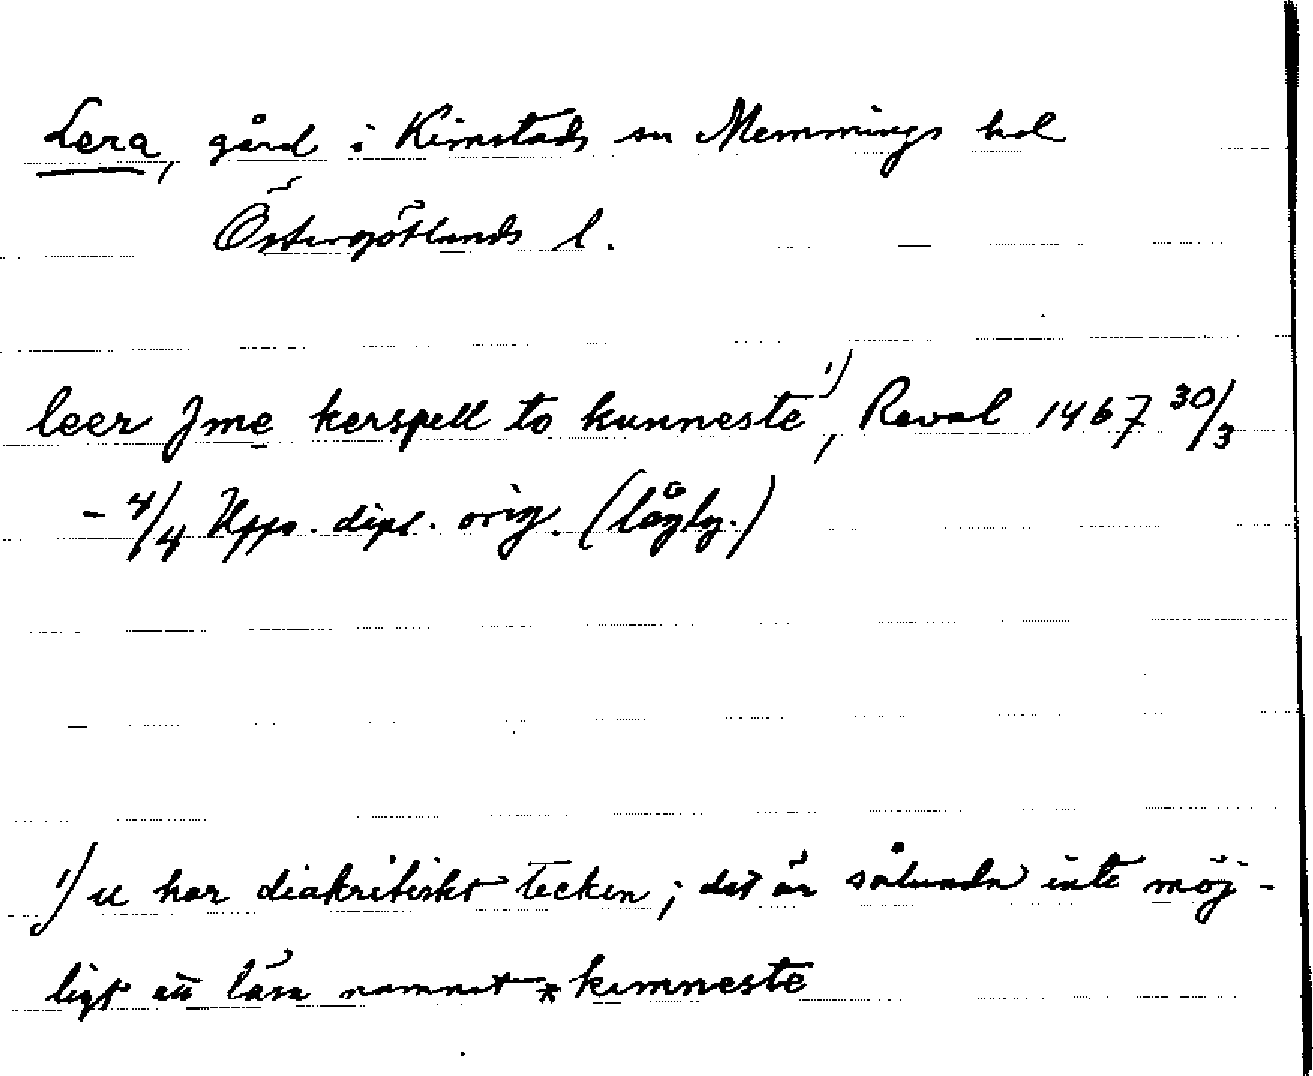 Lera, gård i Kimstads sn Memmings hd
Östergötlands l.
leer Jme kerspell to kunneste 1), Reval 1467 30/3
- 4/4 Upps. dipl. orig. (lågty.)
1) u har diakritiskt tecken; det är sålunda inte möj-
ligt att läsa namnet *kimneste